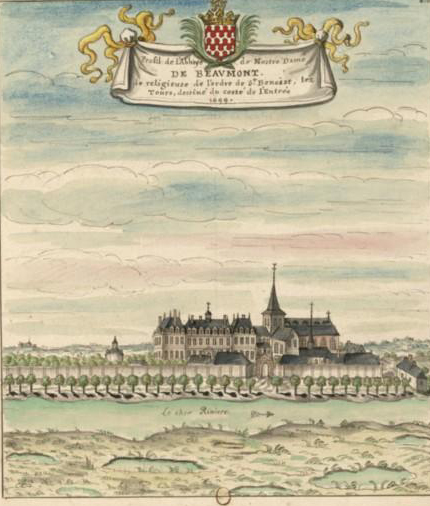 Profil de l'Abbaye de Nostre Dame
DE BEAUMONT.
de religieuse de l'ordre de St. Benoist, lez
Tours, dessiné du costé de l'Entrée
1699.
Le cher Riviere.